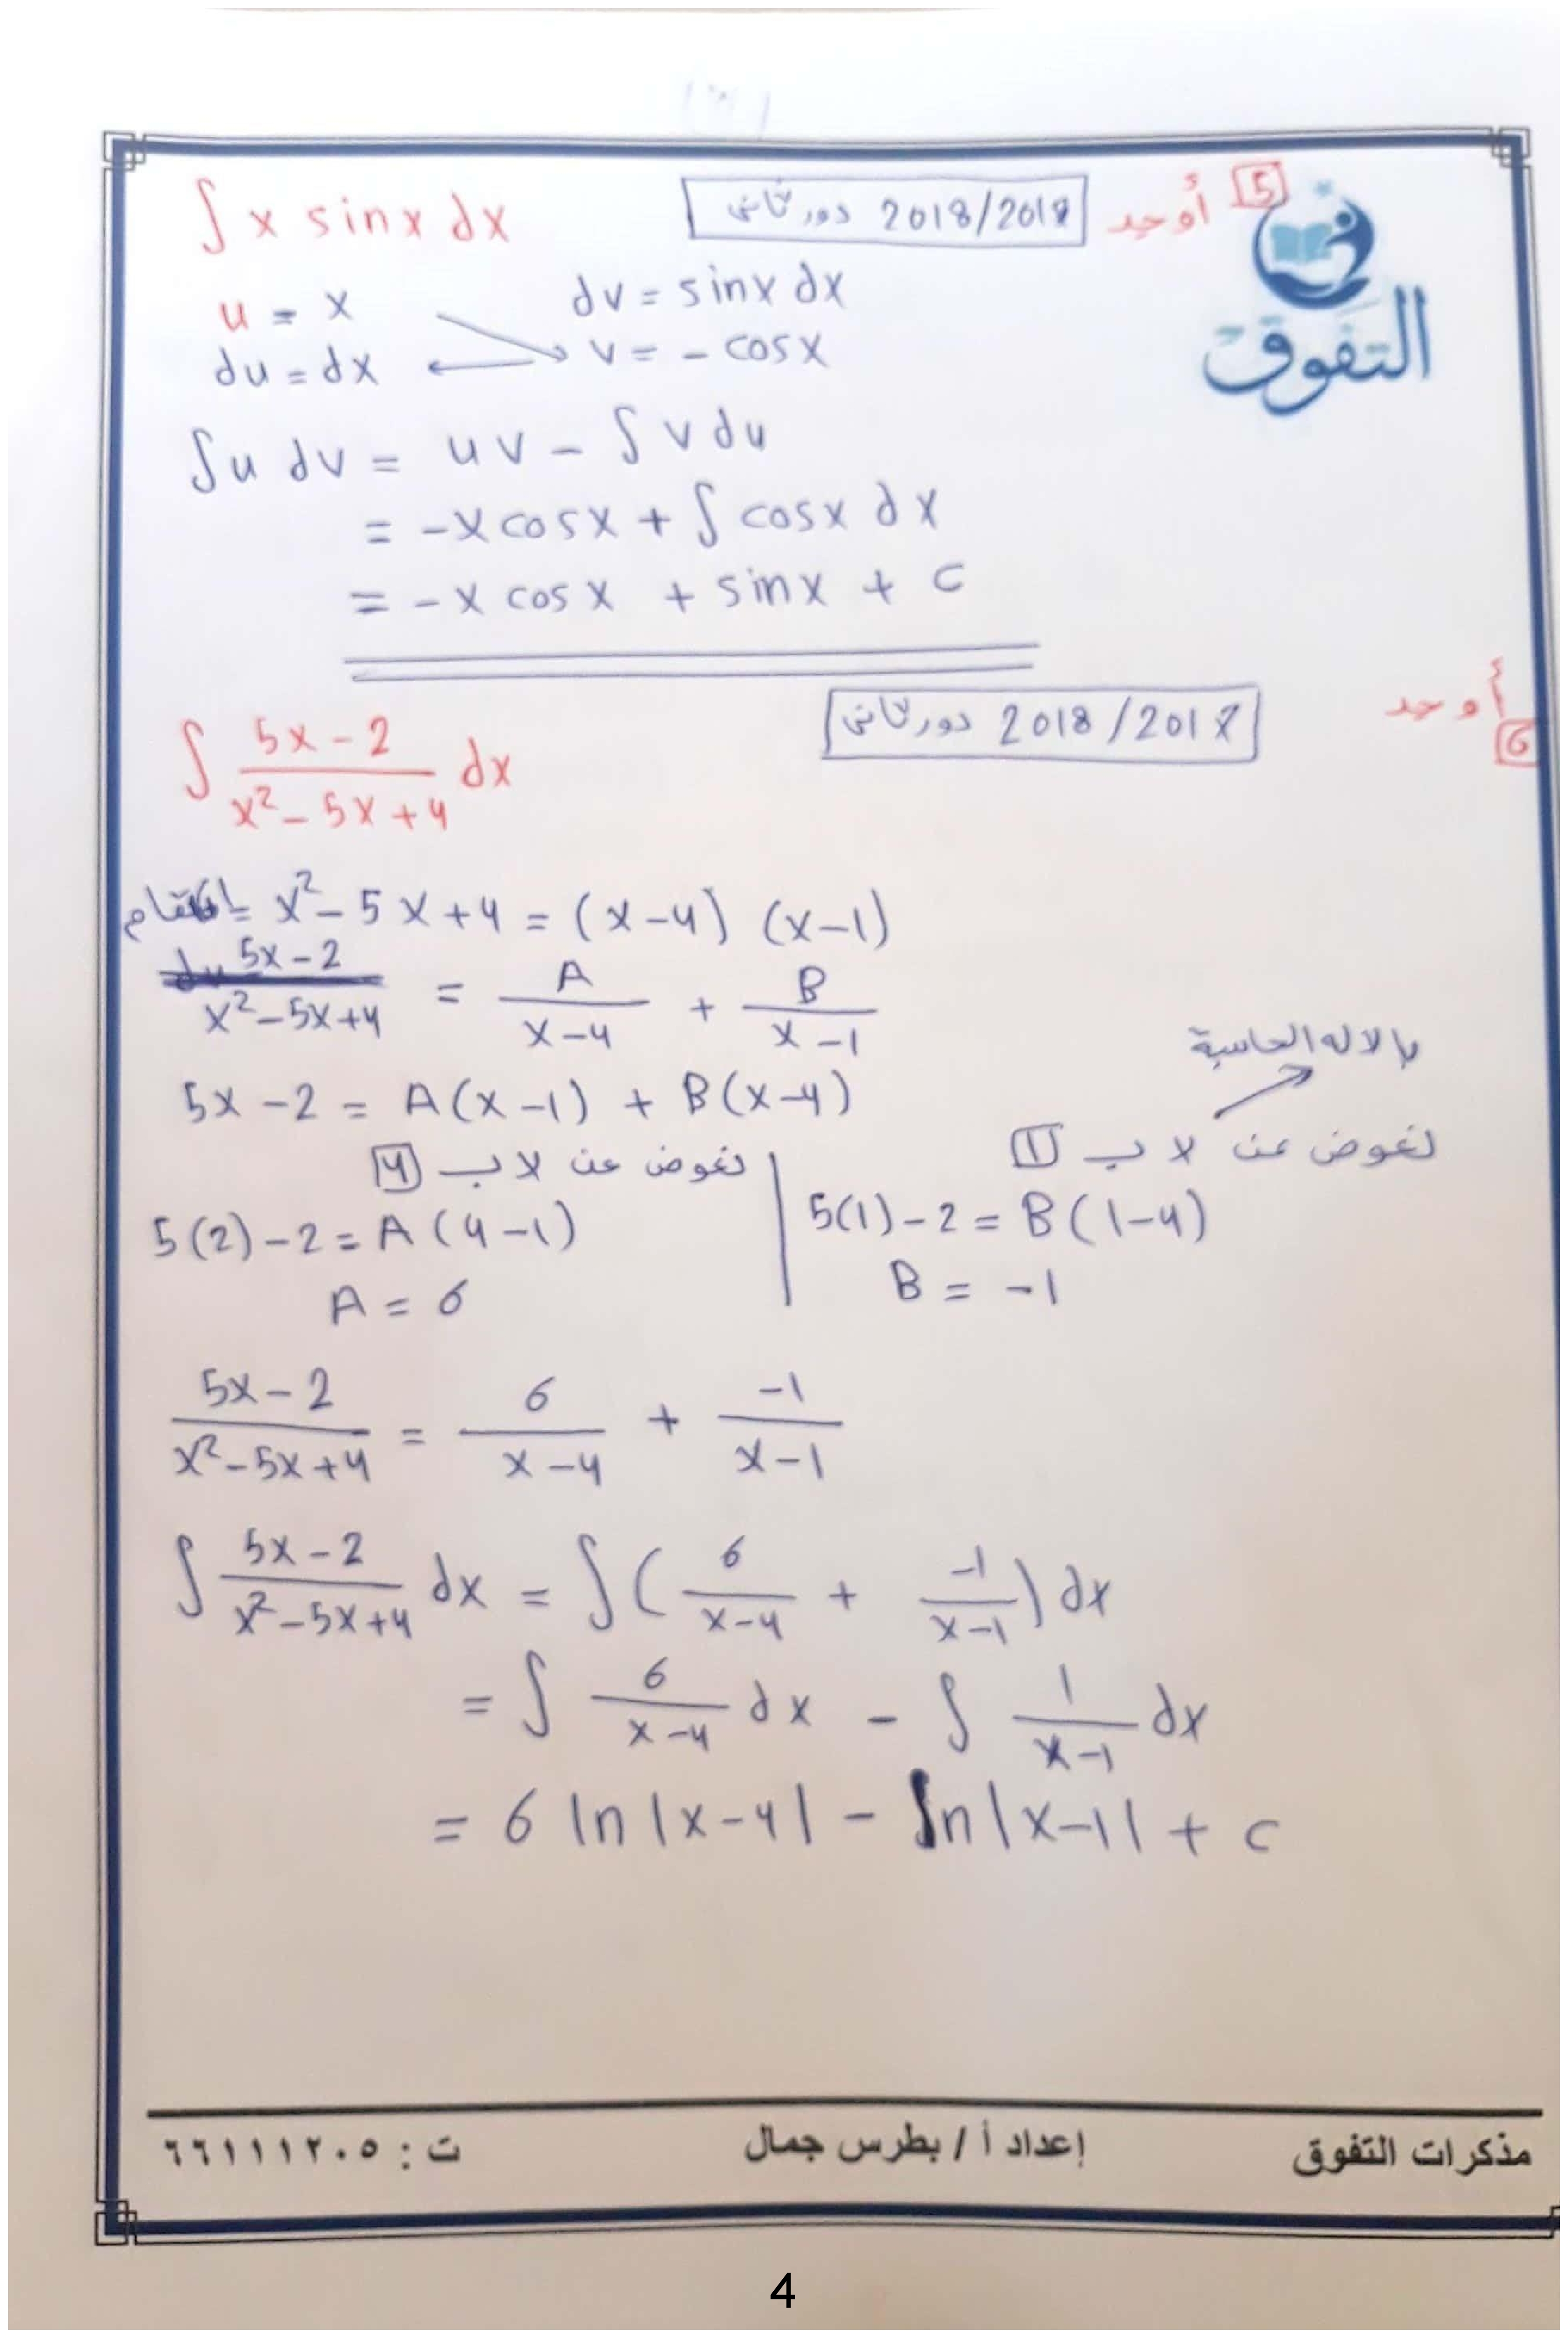 5 أوجد 2018/2017 دور ثانى ∫ x sin x dx
التفوق
u = x dv = sin x dx
du = dx v = - cos x
∫ u dv = uv - ∫ v du
= -x cos x + ∫ cos x dx
= -x cos x + sin x + c
6 أوجد 2018/2017 دور ثانى
∫ (5x-2)/(x²-5x+4) dx
المقام = x² - 5x + 4 = (x-4) (x-1)
(5x-2)/(x²-5x+4) = A/(x-4) + B/(x-1)
بالاله الحاسبة
5x - 2 = A(x-1) + B(x-4)
نعوض عن x ب 1
نعوض عن x ب 4
5(1) - 2 = B(1-4)
5(2) - 2 = A(4-1)
B = -1
A = 6
(5x-2)/(x²-5x+4) = 6/(x-4) + -1/(x-1)
∫ (5x-2)/(x²-5x+4) dx = ∫ ( 6/(x-4) + -1/(x-1) ) dx
= ∫ 6/(x-4) dx - ∫ 1/(x-1) dx
= 6 ln |x-4| - ln |x-1| + c
مذكرات التفوق إعداد أ / بطرس جمال ت : ٦٦١١١٢٠٥
4